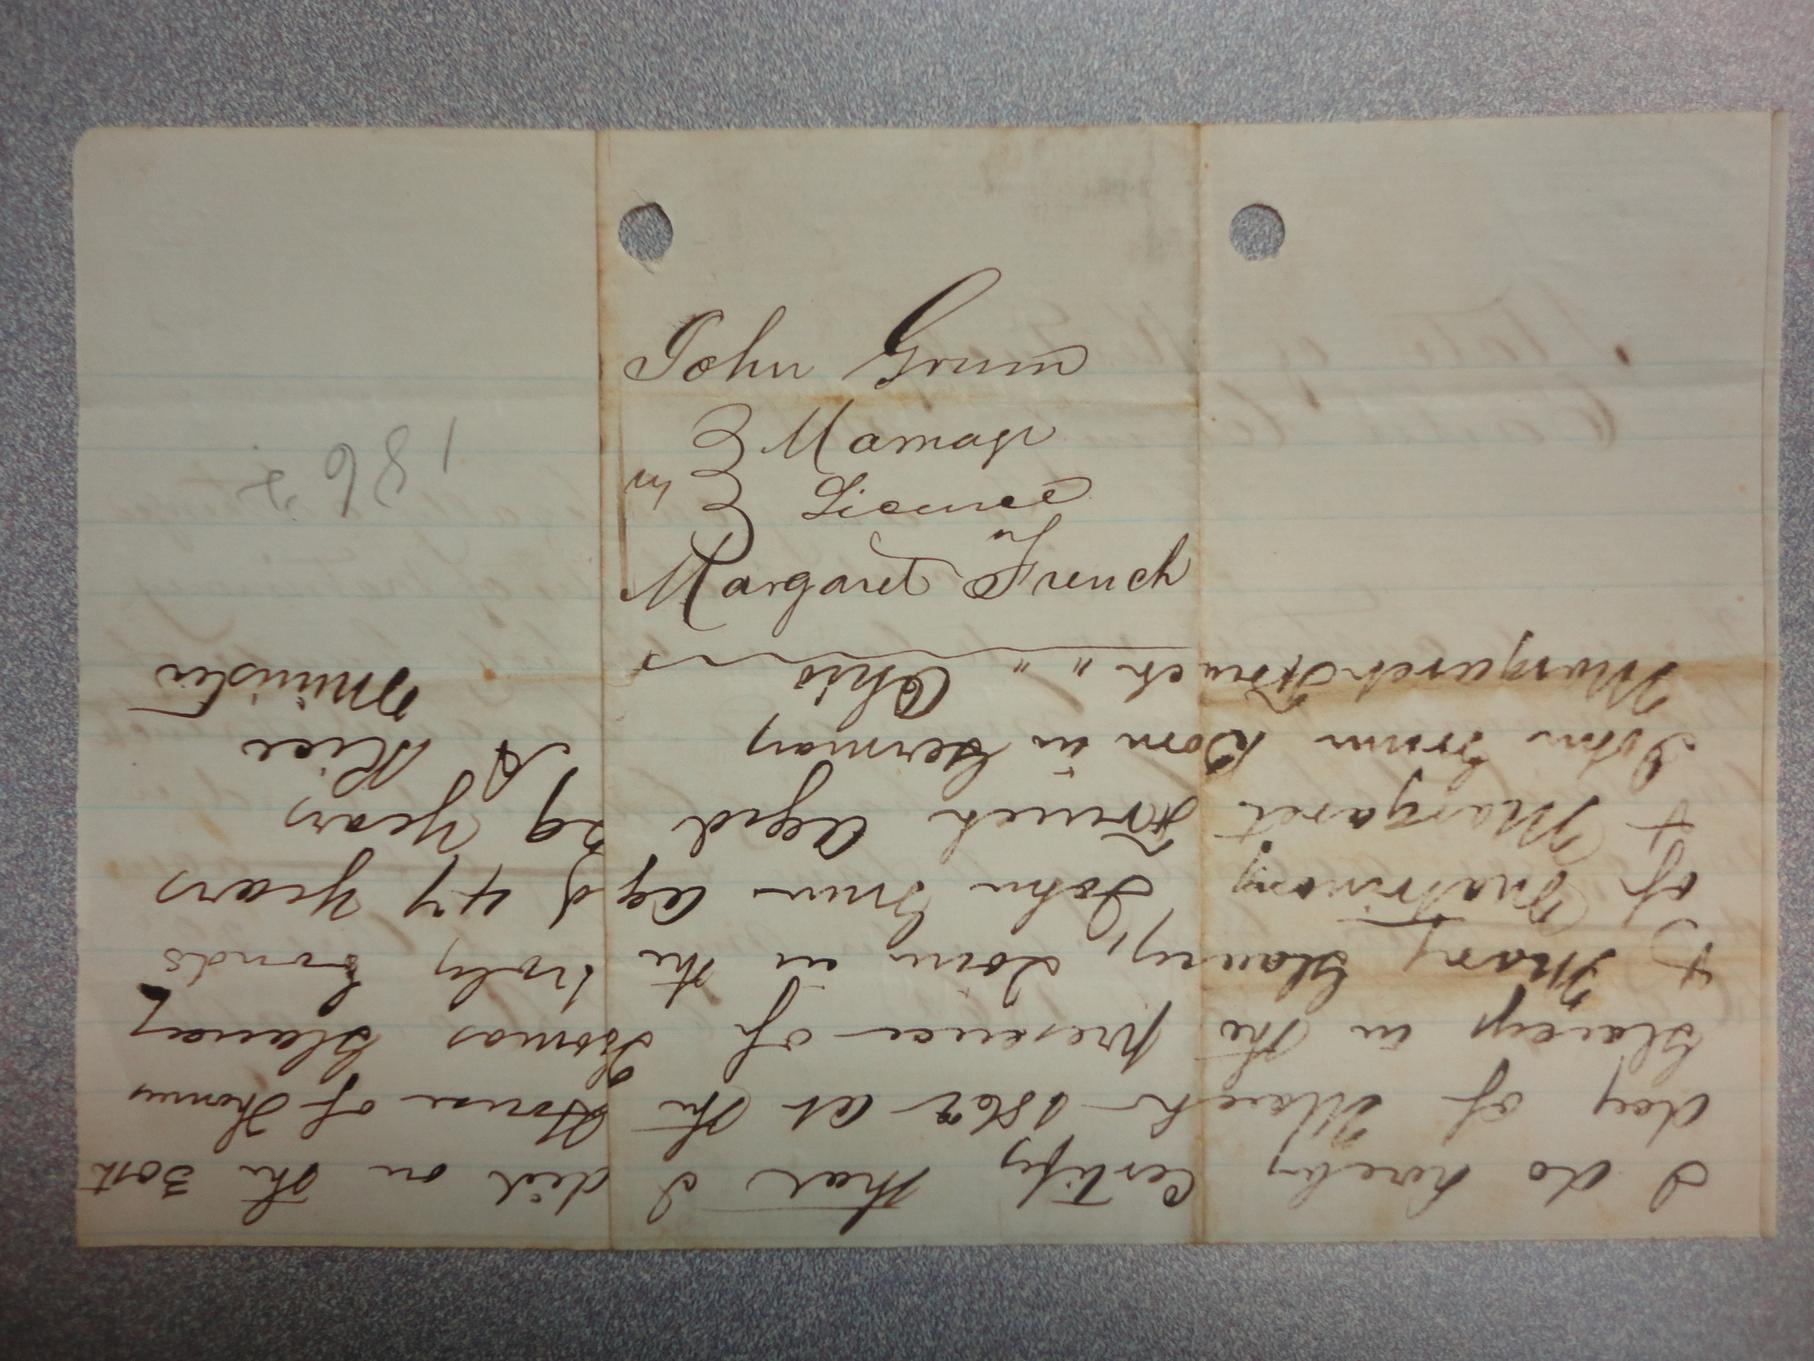 John Grum
Marriage
vs
License
Margaret French
1862
I do hereby Certify that I did on the 30th
day of March 1862 at the House of Thomas
Blancy in the presence of Thomas Blancy
& Mary Blancy, Join in the holy bonds
of Matrimony John Grum Aged 47 years
& Margaret French Aged 29 years
John Grum Born in Germany
A Rice
Margaret French " " Ohio
Minister